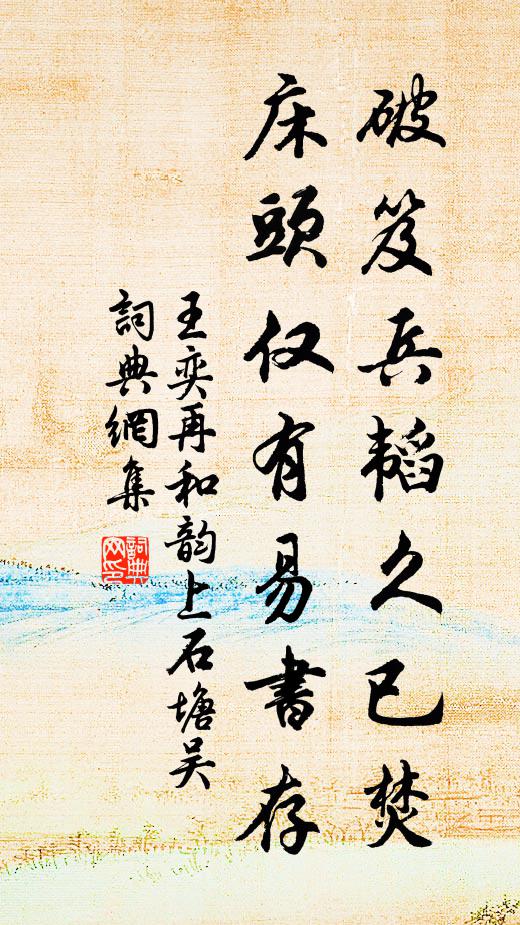 破笈兵韬久已焚
床頭仅有易書存
王奕再和韵上石塘吴
詞典網集
詞典网印